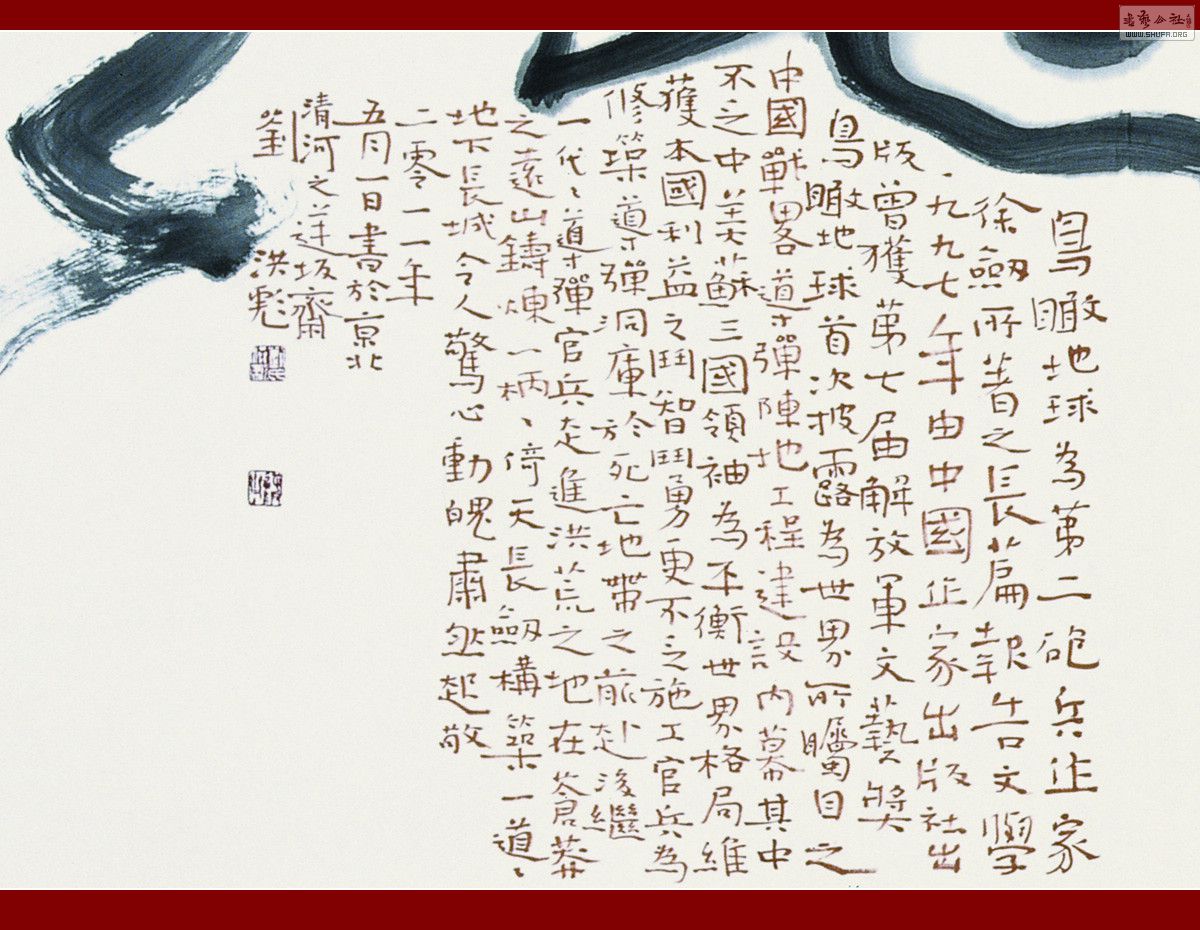 鳥瞰地球為第二砲兵作家
徐劔所著之長篇報告文學
一九九七年由中國作家出版社出
版曾獲第七届解放軍文藝獎
鳥瞰地球首次披露為世界所矚目之
中國戰畧導彈陣地工程建設内幕其中
不乏中美蘇三國領袖為平衡世界格局維
獲本國利益之鬥智鬥勇更不乏施工官兵為
修築導彈洞庫於死亡地帶之前赴後繼
一代〻導彈官兵走進洪荒之地在蒼莽
之遠山鑄煉一柄〻倚天長劔構築一道〻
地下長城令人驚心動魄肅然起敬
二零一一年
五月一日書於京北
清河之洋坂齋
劉洪彪
书艺公社
WWW.SHUFA.ORG